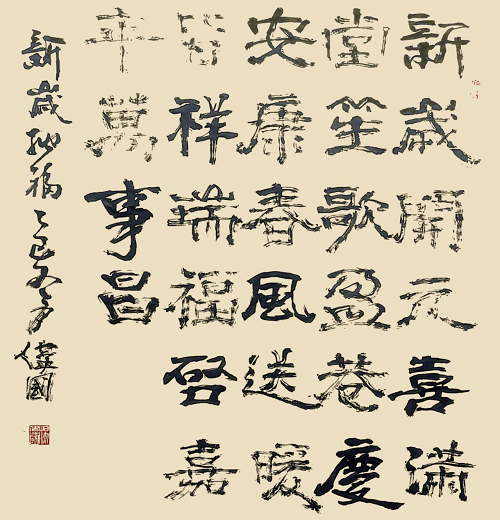 新歲開元喜滿
堂笙歌盈巷慶
安康春風送暖
皆祥瑞福啓嘉
年萬事昌
新歲納福乙巳冬月偉國